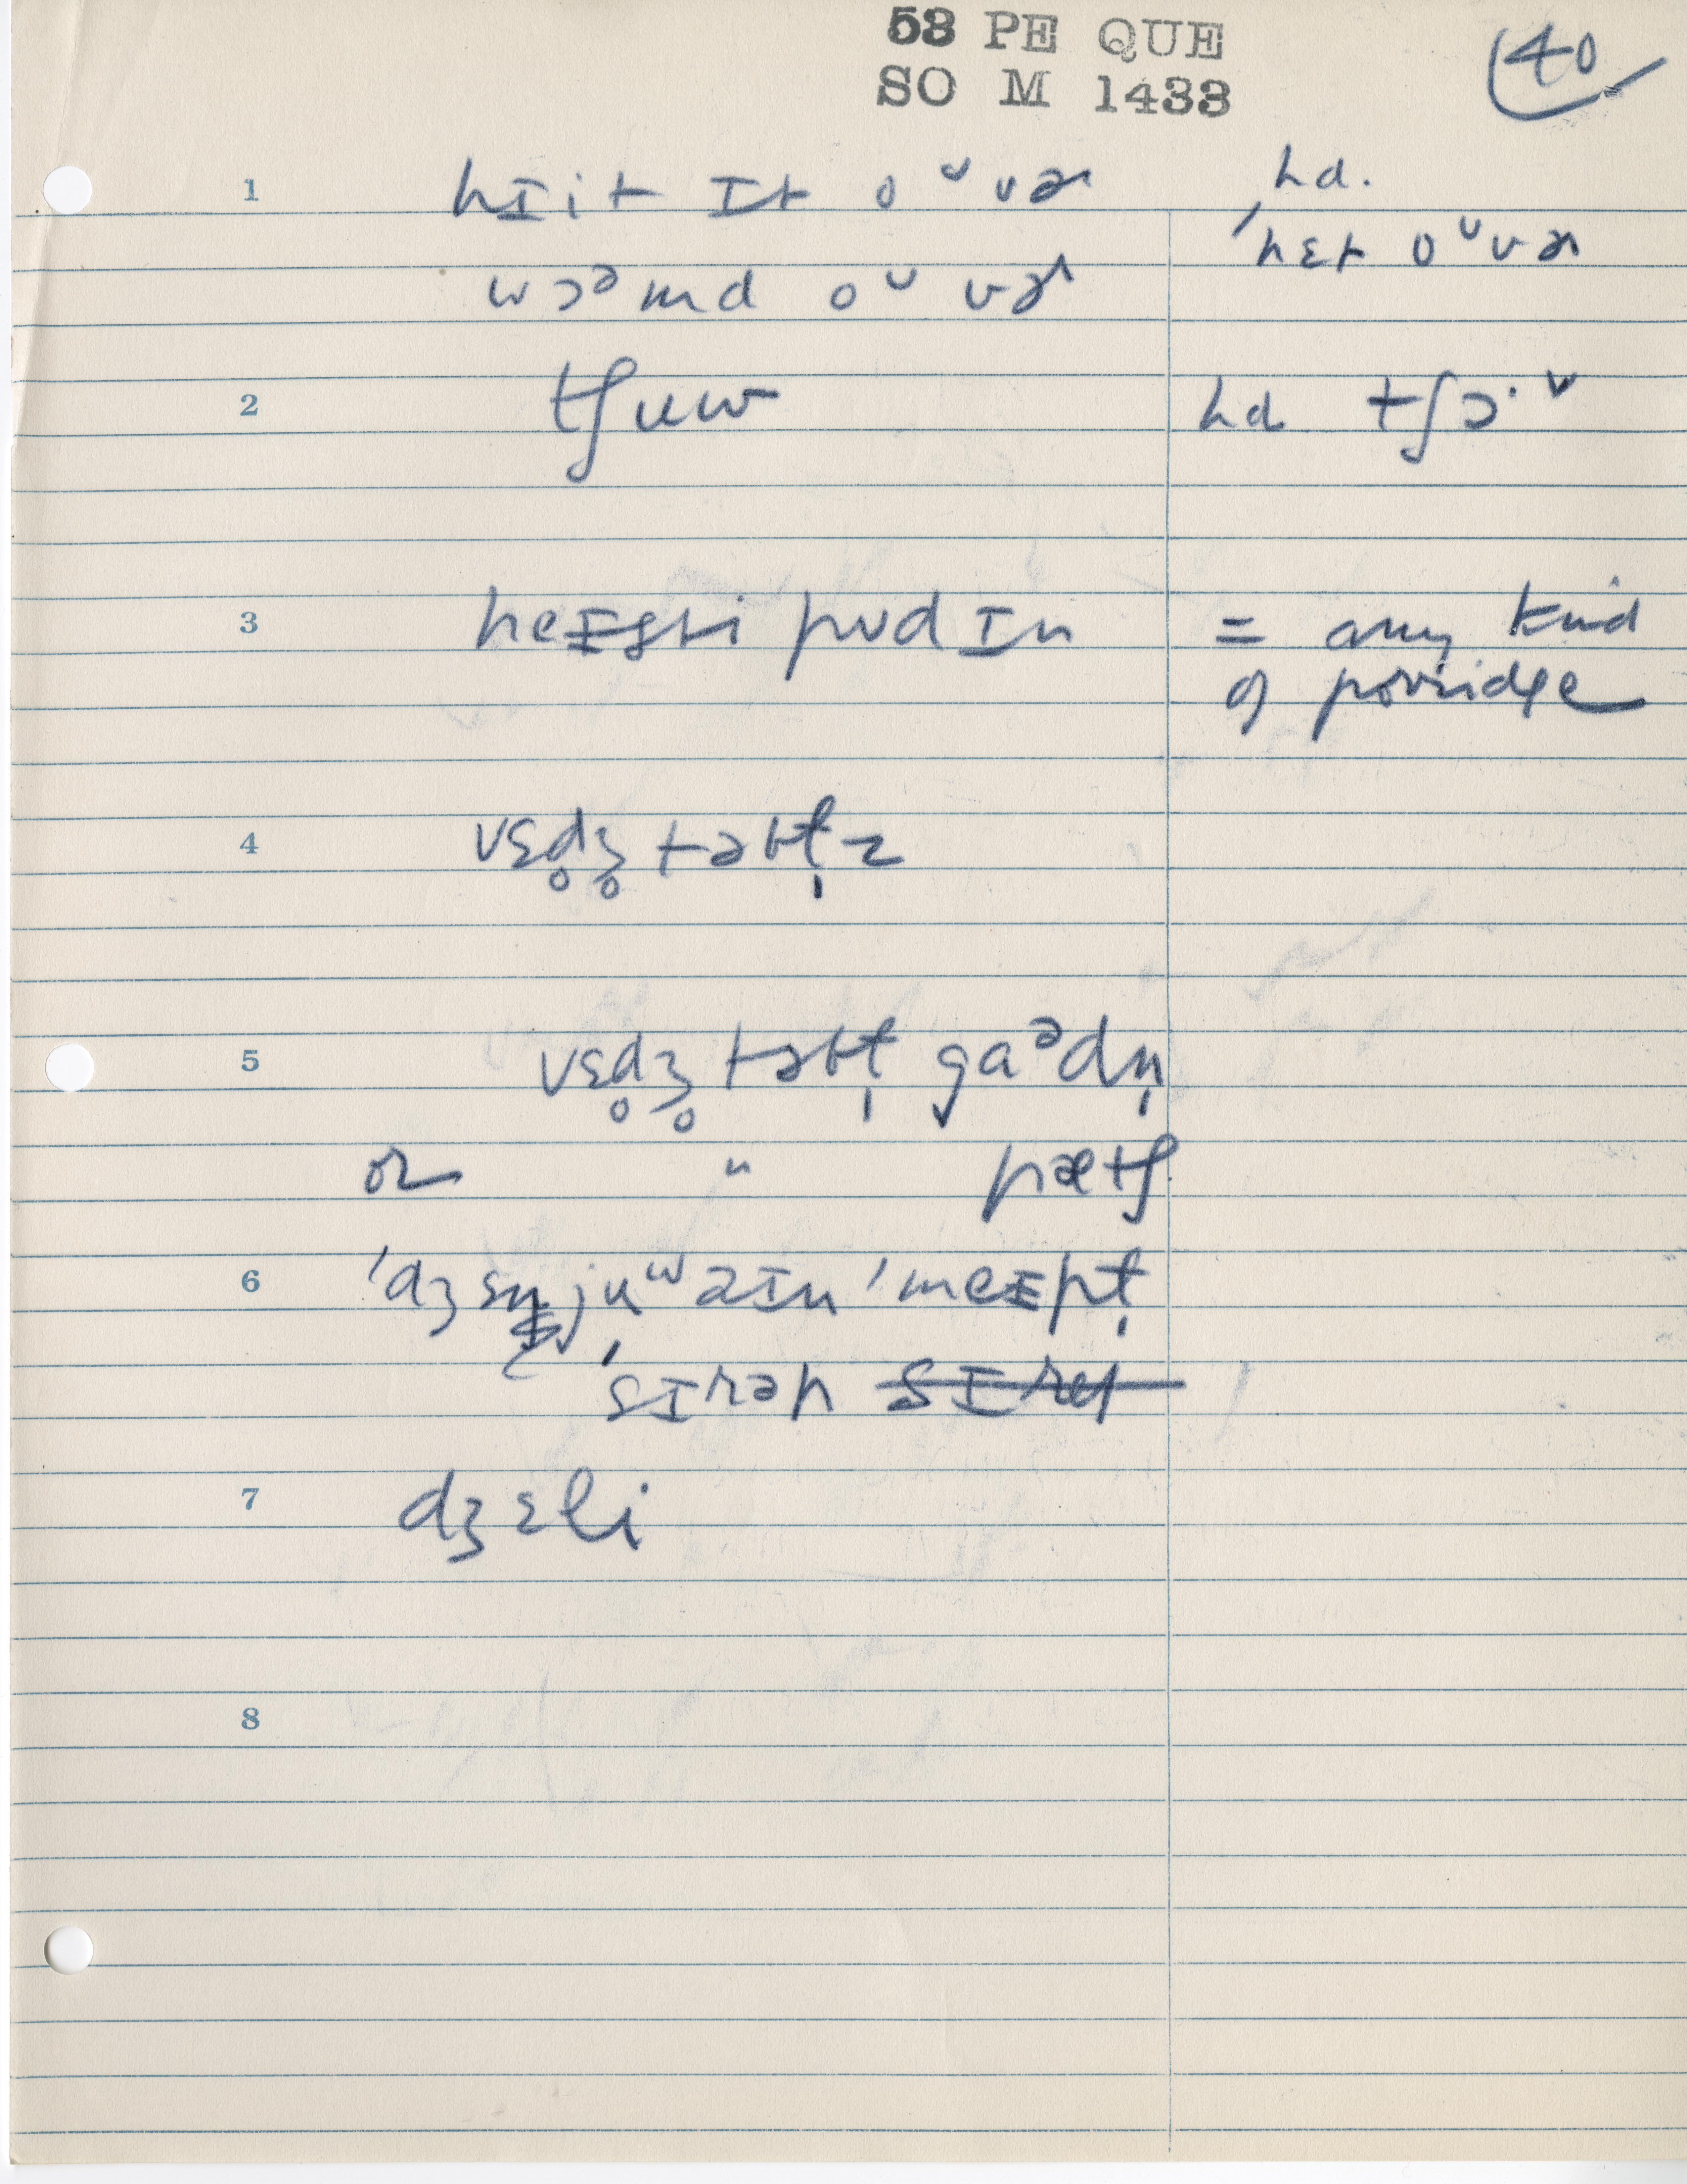 53 PE QUE
SO M 1433
40
1 hɪit ɪt oᵘvɚ hd.
ˈhɛt oᵘvɚ
wɔᵊmd oᵘvɚ
2 tʃuw hd tʃɔ·ᵛ
3 heɪsti pʊdɪn = any kind
of porridge
4 vɛd̥ʒ̥təbɫ̩z
5 vɛd̥ʒ̥təbɫ̩ gaᵊdn̩
or " pætʃ
6 ˈdʒɛnjuʷəɪn ˈmeɪpɫ̩
ˈsɪrəp
7 dʒɛli
8